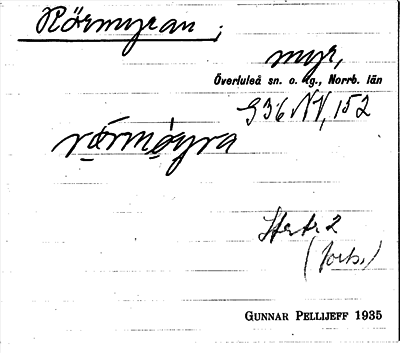 Rörmyran;
myr,
Överluleå sn. o. tg., Norrb. län
G36 NV, 152
rörmøyra
2
GUNNAR PELLIJEFF 1935